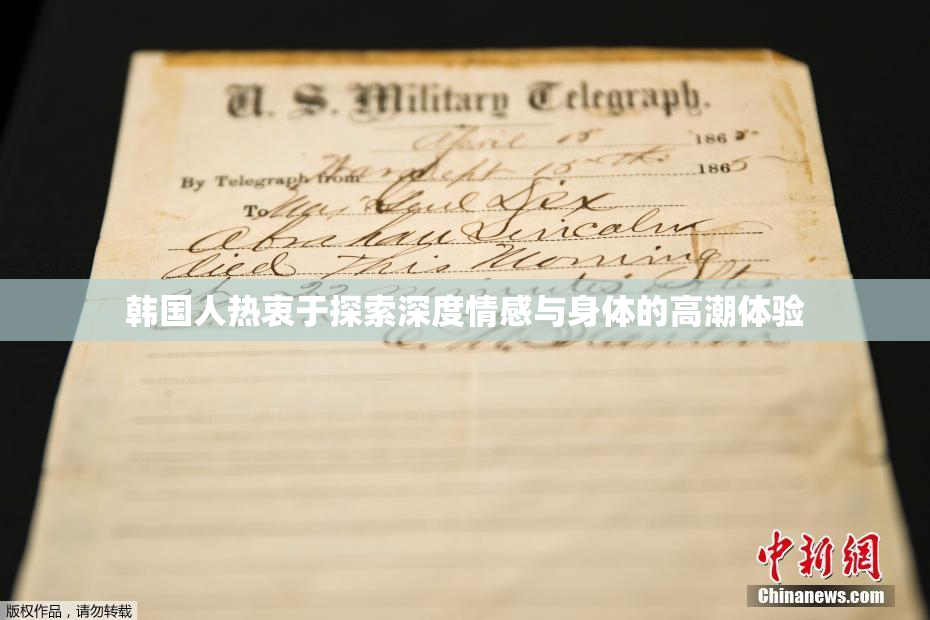 U. S. Military Telegraph.
April 15 1865
By Telegraph from War Dept 15th 1865
To Maj Genl Dix
Abraham Lincoln
died This Morning
at 22 minutes after
韩国人热衷于探索深度情感与身体的高潮体验
E. M. Stanton
中新网
Chinanews.com
版权作品，请勿转载